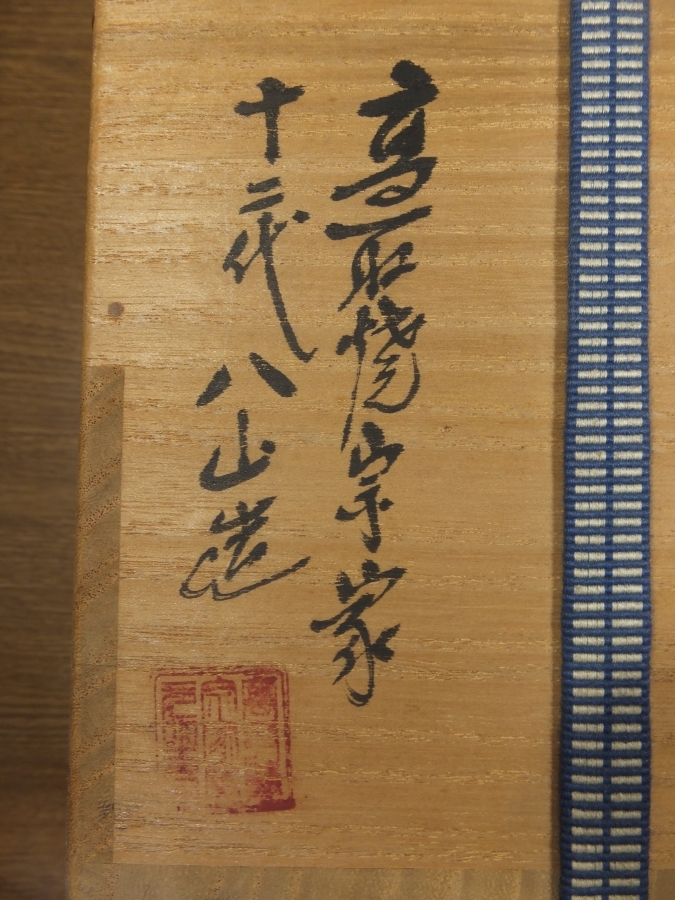 高取焼宗家
十二代八山造